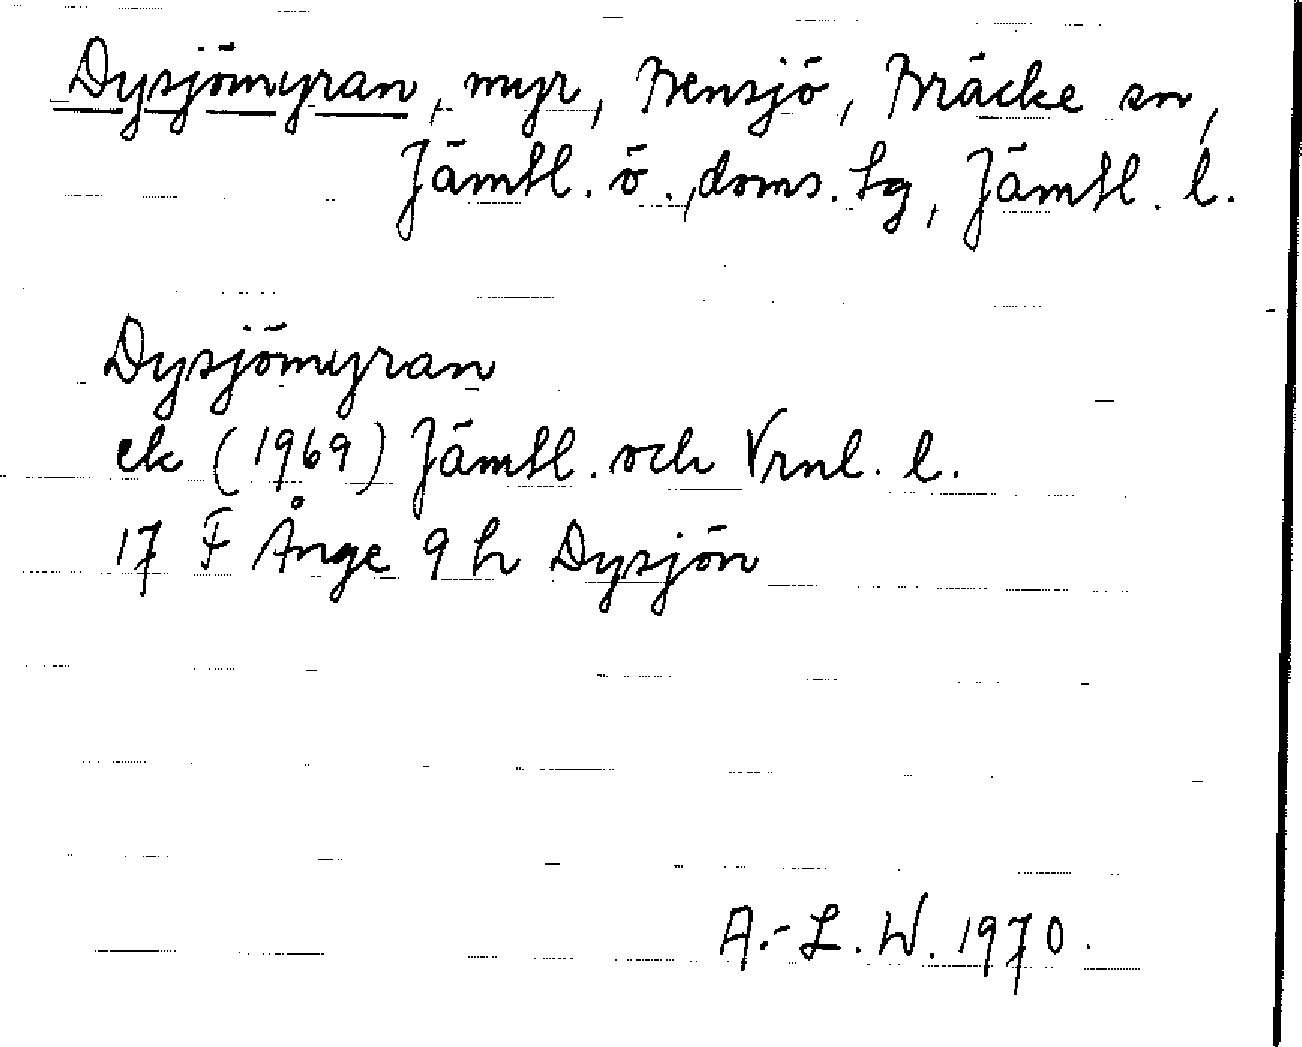 Dysjömyran, myr, Bensjö, Bräcke sn,
Jämtl. ö. doms. tg, Jämtl. l.
Dysjömyran
ek (1969) Jämtl. och Vrnl. l.
17 F Ånge 9 h Dysjön
A.-L. W. 1970.